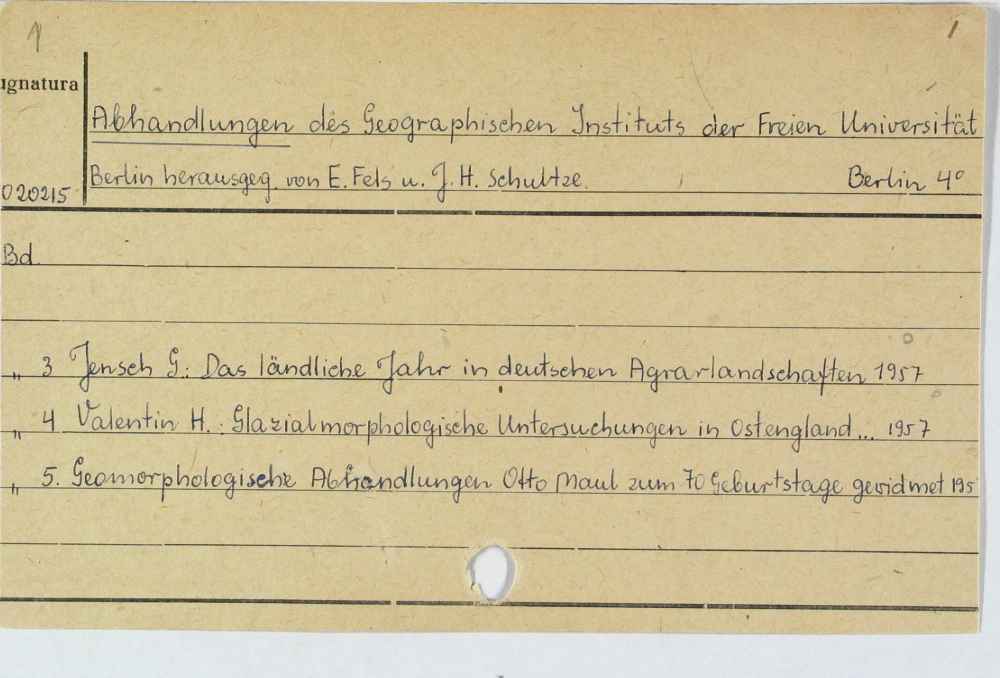 1 1
ignatura
Abhandlungen des Geographischen Instituts der Freien Universität
020215 Berlin herausgeg. von E. Fels u. J. H. Schultze. Berlin 4°
Bd.
„ 3 Jensch G.: Das ländliche Jahr in deutschen Agrarlandschaften 1957
„ 4 Valentin H. : Glazialmorphologische Untersuchungen in Ostengland... 1957
„ 5. Geomorphologische Abhandlungen Otto Maul zum 70 Geburtstage gewidmet 195